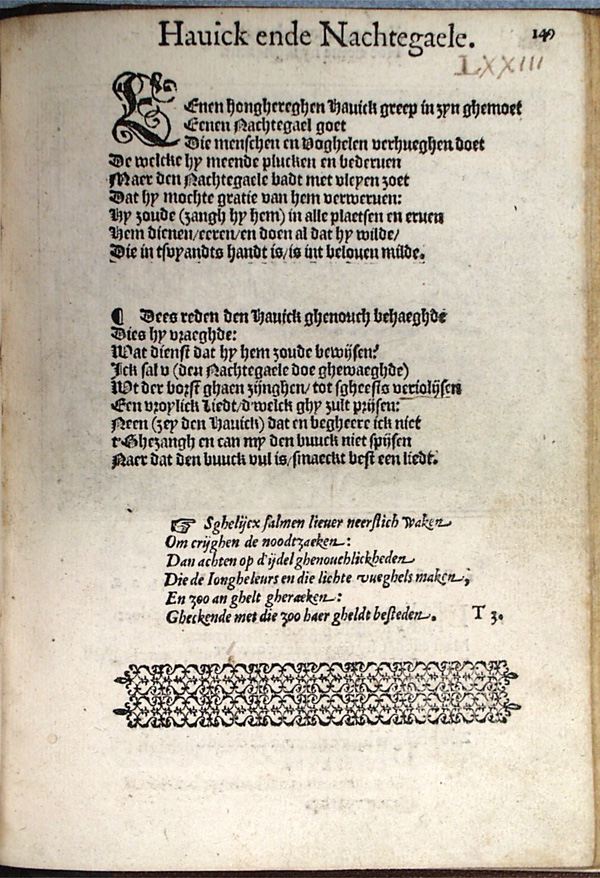 Hauick ende Nachtegaele.
149
LXXIII
EEnen honghereghen Hauick greep in zyn ghemoet
Eenen Nachtegael goet
Die menschen en Voghelen verhueghen doet
De welcke hy meende plucken en bederuen
Maer den Nachtegaele badt met vleyen zoet
Dat hy mochte gratie van hem verweruen:
Hy zoude (zangh hy hem) in alle plaetsen en eruen
Hem dienen/eeren/en doen al dat hy wilde/
Die in tsvyandts handt is/is int belouen milde.
¶ Dees reden den Hauick ghenouch behaeghde
Dies hy vraeghde:
Wat dienst dat hy hem zoude bewijsen?
Ick sal v (den Nachtegaele doe ghewaeghde)
Wt der borst ghaen zijnghen/tot sgheests veriolijsen
Een vroylick Liedt/d'welck ghy zult prijsen:
Neen (zey den Hauick) dat en begheere ick niet
t'Ghezangh en can my den buuck niet spijsen
Naer dat den buuck vul is/smaeckt best een liedt.
☞ Sghelijcx salmen lieuer neerstich waken
Om crijghen de noodtzaeken:
Dan achten op d'ijdel ghenouchlickheden
Die de Iongheleurs en die lichte vueghels maken,
En zoo an ghelt gheraeken:
Gheckende met die zoo haer gheldt besteden.
T 3.